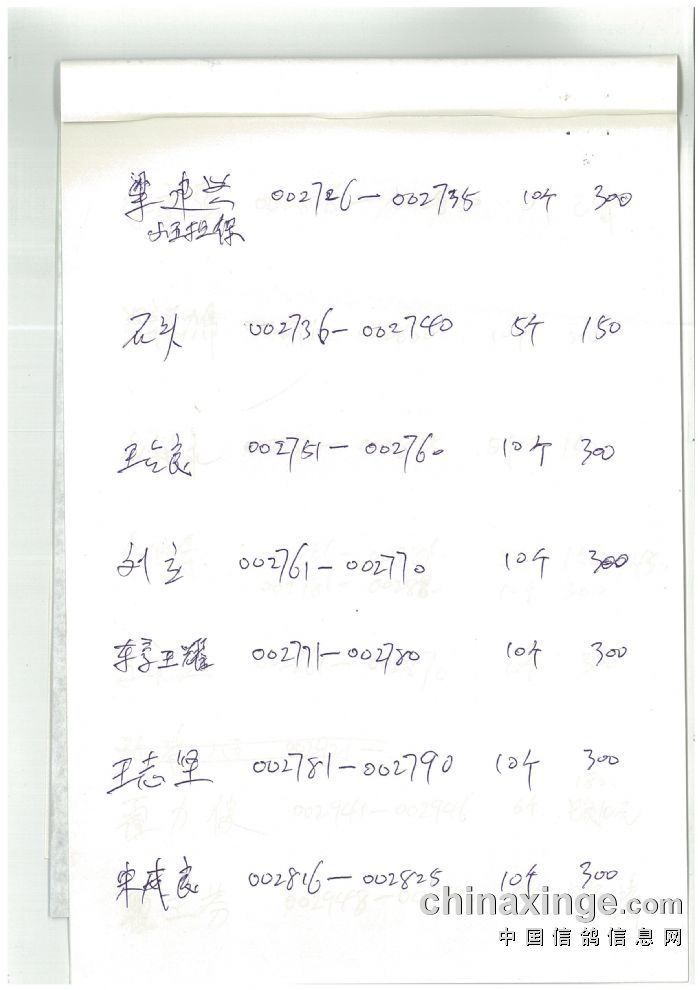 梁建兴 002726-002735 10个 300
小王担保
石头 002736-002740 5个 150
王占良 002751-002760 10个 300
刘立 002761-002770 10个 300
车享王耀 002771-002780 10个 300
王志坚 002781-002790 10个 300
宋成良 002816-002825 10个 300
chinaxinge.com
中国信鸽信息网